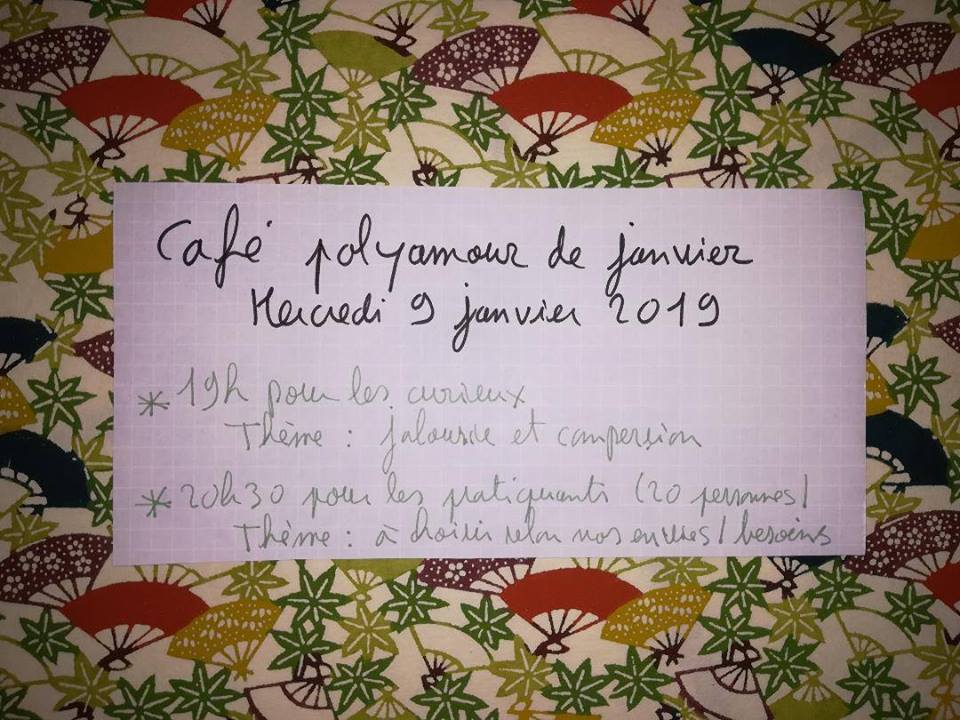 Café polyamour de janvier
Mercredi 9 janvier 2019
* 19h pour les curieux
Thème : jalousie et compersion
* 20h30 pour les pratiquants (20 personnes)
Thème : à choisir selon nos envies / besoins